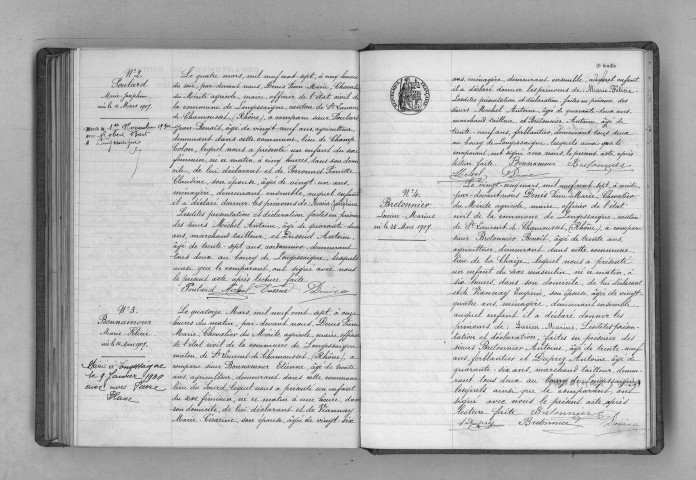 N° 2.
Poulard
Marie Joséphine
née le 4 Mars 1907.
Le quatre mars, mil neuf cent sept, à cinq heures
du soir, par devant nous, Denis Jean Marie, Chevalier
du Mérite agricole, maire, officier de l'état civil de
la commune de Longessaigne, canton de St Laurent
de Chamousset, (Rhône), a comparu sieur Poulard
Jean Benoît, âgé de vingt-neuf ans, agriculteur,
demeurant dans cette commune, lieu de
lequel nous a présenté un enfant du sexe
féminin, né ce matin, à cinq heures dans son domi-
cile, de lui déclarant et de Pierrette
Claudine, son épouse, âgée de vingt-un ans,
ménagère, demeurant ensemble, auquel enfant
il a déclaré donner les prénoms de Marie Joséphine
Lesdites présentation et déclaration faites en présence
des sieurs Michel Antoine, âgé de quarante-deux
ans, marchand tailleur, et Antoine,
âgé de trente-sept ans, cordonnier, demeurant
tous deux au bourg de Longessaigne, lesquels
ainsi que le comparant ont signé avec nous
le présent acte après lecture faite
Poulard Michel Denis
N° 3.
Bonnamour
Marie Félicie
née le 14 Mars 1907.
Marié à Longessaigne
le 9 Janvier 1930
avec
Le quatorze Mars, mil neuf cent sept, à onze
heures du matin, par devant nous, Denis Jean
Marie, Chevalier du Mérite agricole, maire officier
de l'état civil de la commune de Longessaigne
canton de St Laurent de Chamousset, (Rhône), a
comparu sieur Bonnamour Etienne, âgé de trente
ans, agriculteur, demeurant dans cette commune
lieu du lequel nous a présenté un enfant
du sexe féminin, né ce matin à une heure, dans
son domicile, de lui déclarant et de Viannay
Marie Césarine, son épouse, âgée de vingt-six
2e feuille
ans, ménagère, demeurant ensemble, auquel enfant
il a déclaré donner les prénoms de Marie Félicie
Lesdites présentation et déclaration, faites en présence des
sieurs Michel Antoine, âgé de quarante-deux ans
marchand tailleur et Bretonnier Antoine, âgé de
trente-neuf ans, ferblantier, demeurant tous deux
au bourg de Longessaigne, lesquels ainsi que le
comparant ont signé avec nous, le présent acte, après
lecture faite Bonnamour Bretonnier
Michel Denis
N° 4.
Bretonnier
Lucien Marius
né le 28 Mars 1907.
mil neuf cent sept, à midi,
par devant nous Denis Jean Marie, Chevalier
du Mérite agricole, maire, officier de l'état
civil de la commune de Longessaigne, canton
de St Laurent de Chamousset, (Rhône), a comparu
sieur Bretonnier Benoît, âgé de trente ans,
agriculteur, demeurant dans cette commune
lieu de la Chaize, lequel nous a présenté
un enfant du sexe masculin, né ce matin, à
six heures dans son domicile, de lui déclarant
et de Viannay Eugénie, son épouse, âgée de vingt-
quatre ans, ménagère, demeurant ensemble
auquel enfant il a déclaré donner les
prénoms de Lucien Marius. Lesdites présen-
tation et déclaration, faites en présence des
sieurs Bretonnier Antoine, âgé de trente-neuf
ans, ferblantier et Dupeix Antoine, âgé de
quarante-six ans, marchand tailleur, demeu-
rant tous deux au bourg de Longessaigne,
lesquels ainsi que le comparant, ont
signé avec nous le présent acte après
lecture faite Bretonnier
Bretonnier Denis